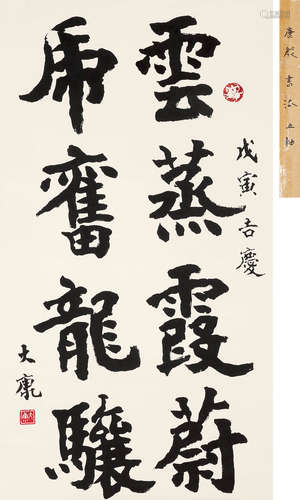 康殷 書法 立軸
戊寅吉慶
雲蒸霞蔚
虎奮龍驤
大康